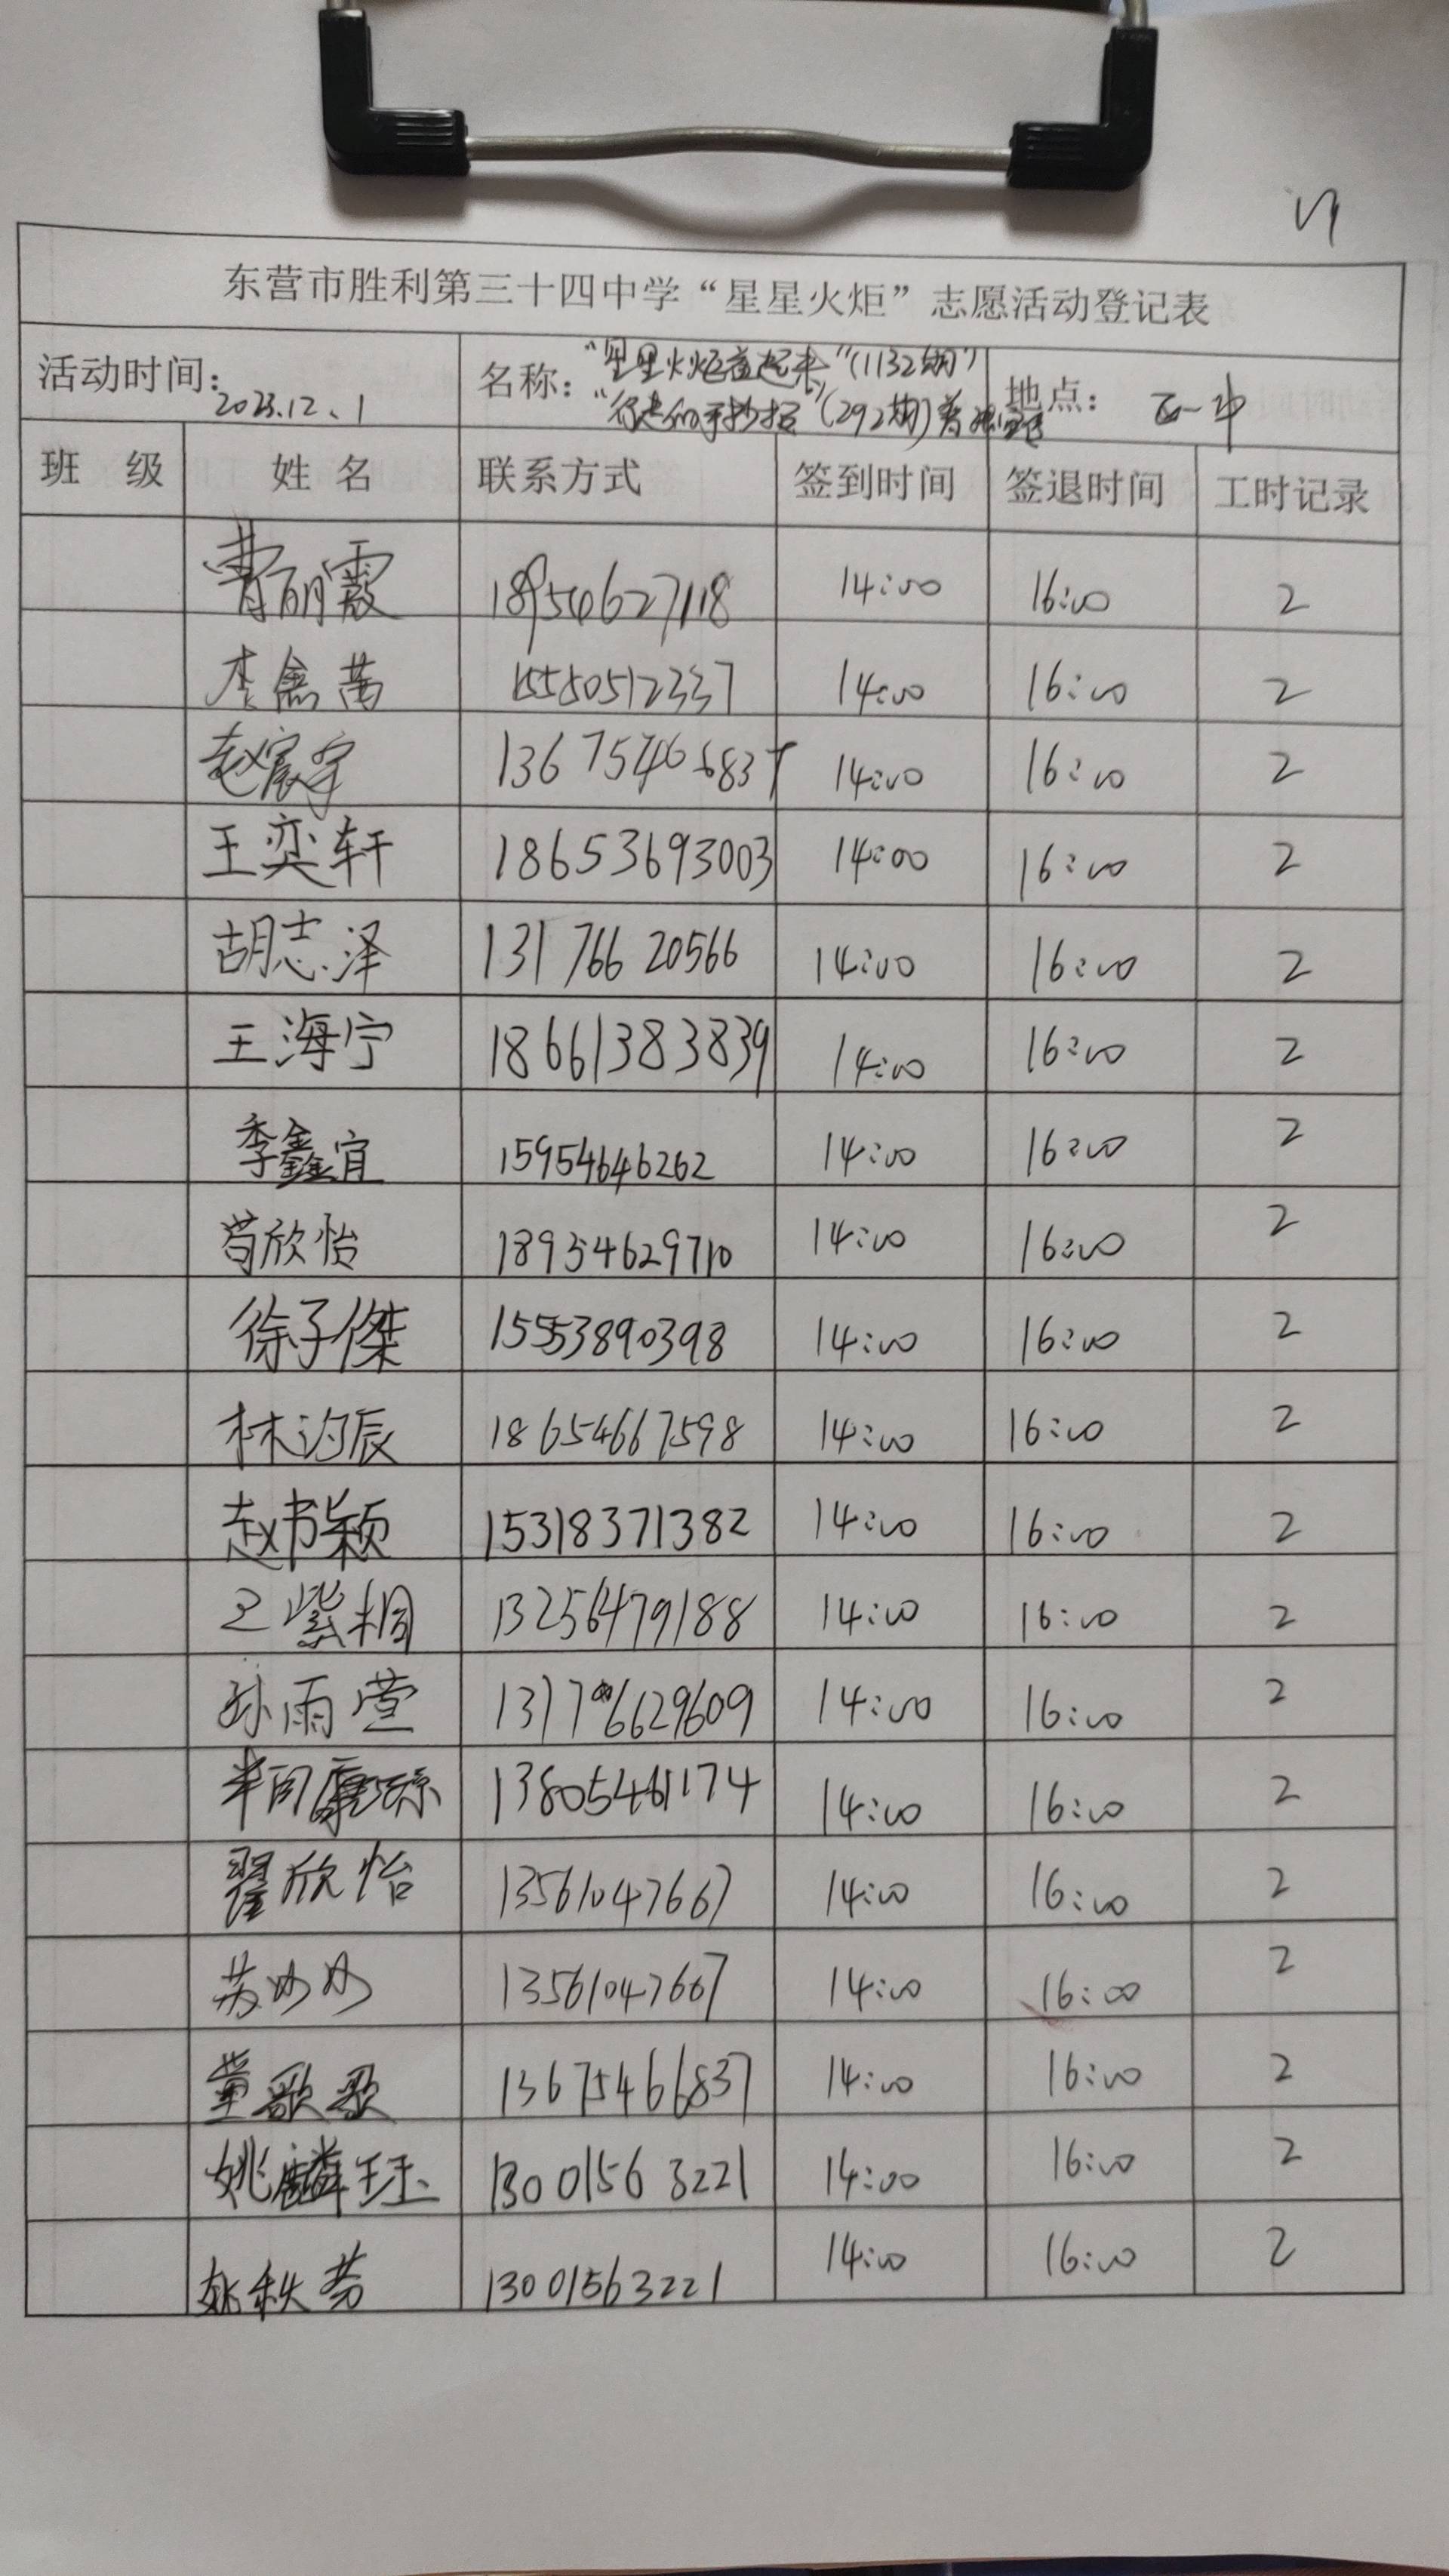 东营市胜利第三十四中学“星星火炬”志愿活动登记表
活动时间：2023.12.1
名称：“星星火炬益起来”(1132期)
“行走的手抄报”(292期)
地点：
班 级 姓 名 联系方式 签到时间 签退时间 工时记录
曹丽霞 18954627118 14:00 16:00 2
李 15580512337 14:00 16:00 2
赵宸宇 14:00 16:00 2
王奕轩 18653693003 14:00 16:00 2
胡志泽 131 766 20566 14:00 16:00 2
王海宁 18661383839 14:00 16:00 2
季鑫宜 15954646262 14:00 16:00 2
苟欣怡 18954629710 14:00 16:00 2
徐子傑 15553890398 14:00 16:00 2
林汮辰 18654667598 14:00 16:00 2
赵书颖 15318371382 14:00 16:00 2
王紫桐 13256479188 14:00 16:00 2
孙雨萱 14:00 16:00 2
13805461174 14:00 16:00 2
翟欣怡 13561047667 14:00 16:00 2
苏妙妙 13561047667 14:00 16:00 2
董歌歌 13675466837 14:00 16:00 2
姚麟珏 1300156 3221 14:00 16:00 2
姚秋芳 13001563221 14:00 16:00 2